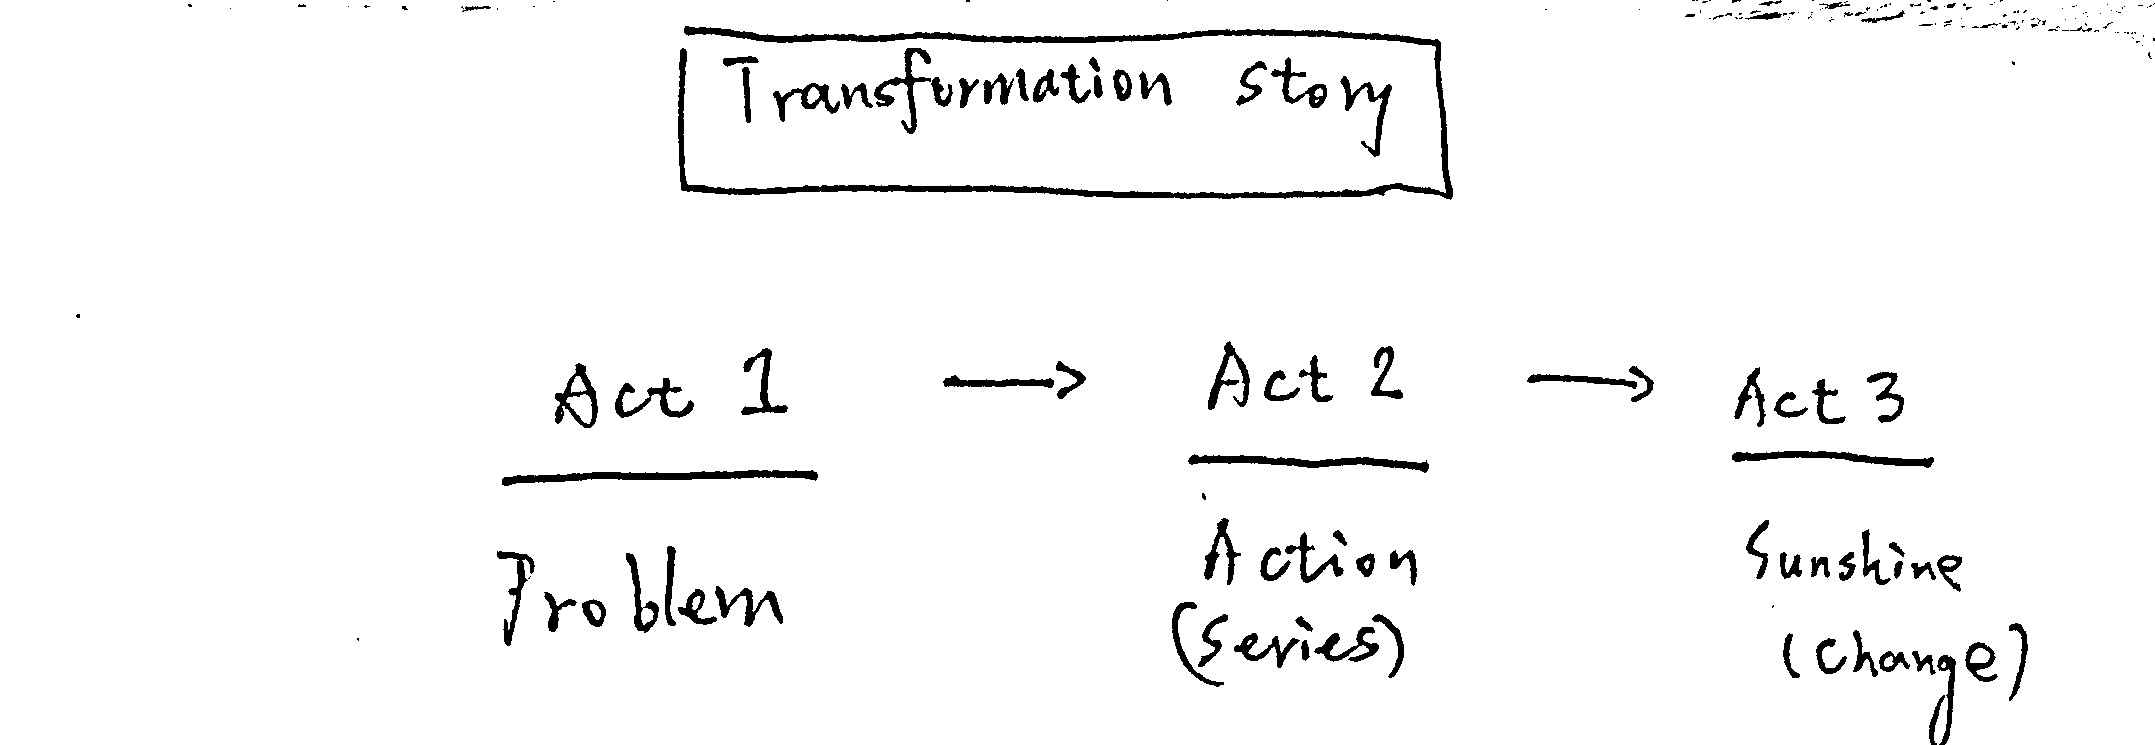 Transformation story
Act 1 → Act 2 → Act 3
Problem
Action
(Series)
Sunshine
(Change)